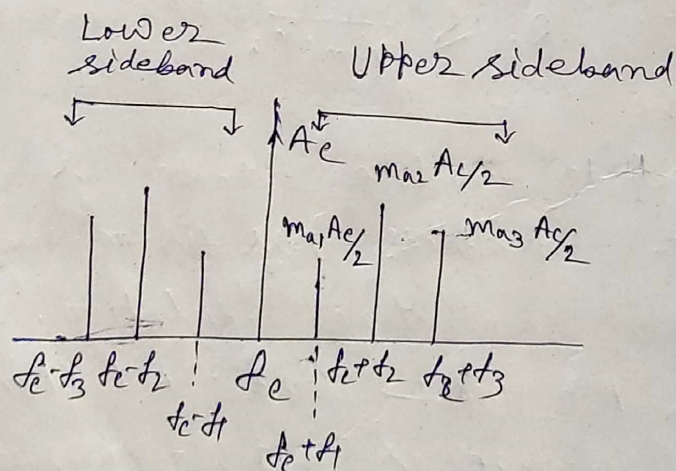 Lower
sideband
Upper sideband
Ac
ma2 Ac/2
ma1 Ac/2
ma3 Ac/2
fc-f3 fc-f2 fc fc+f2 f3+f3
fc-f1
fc+f1